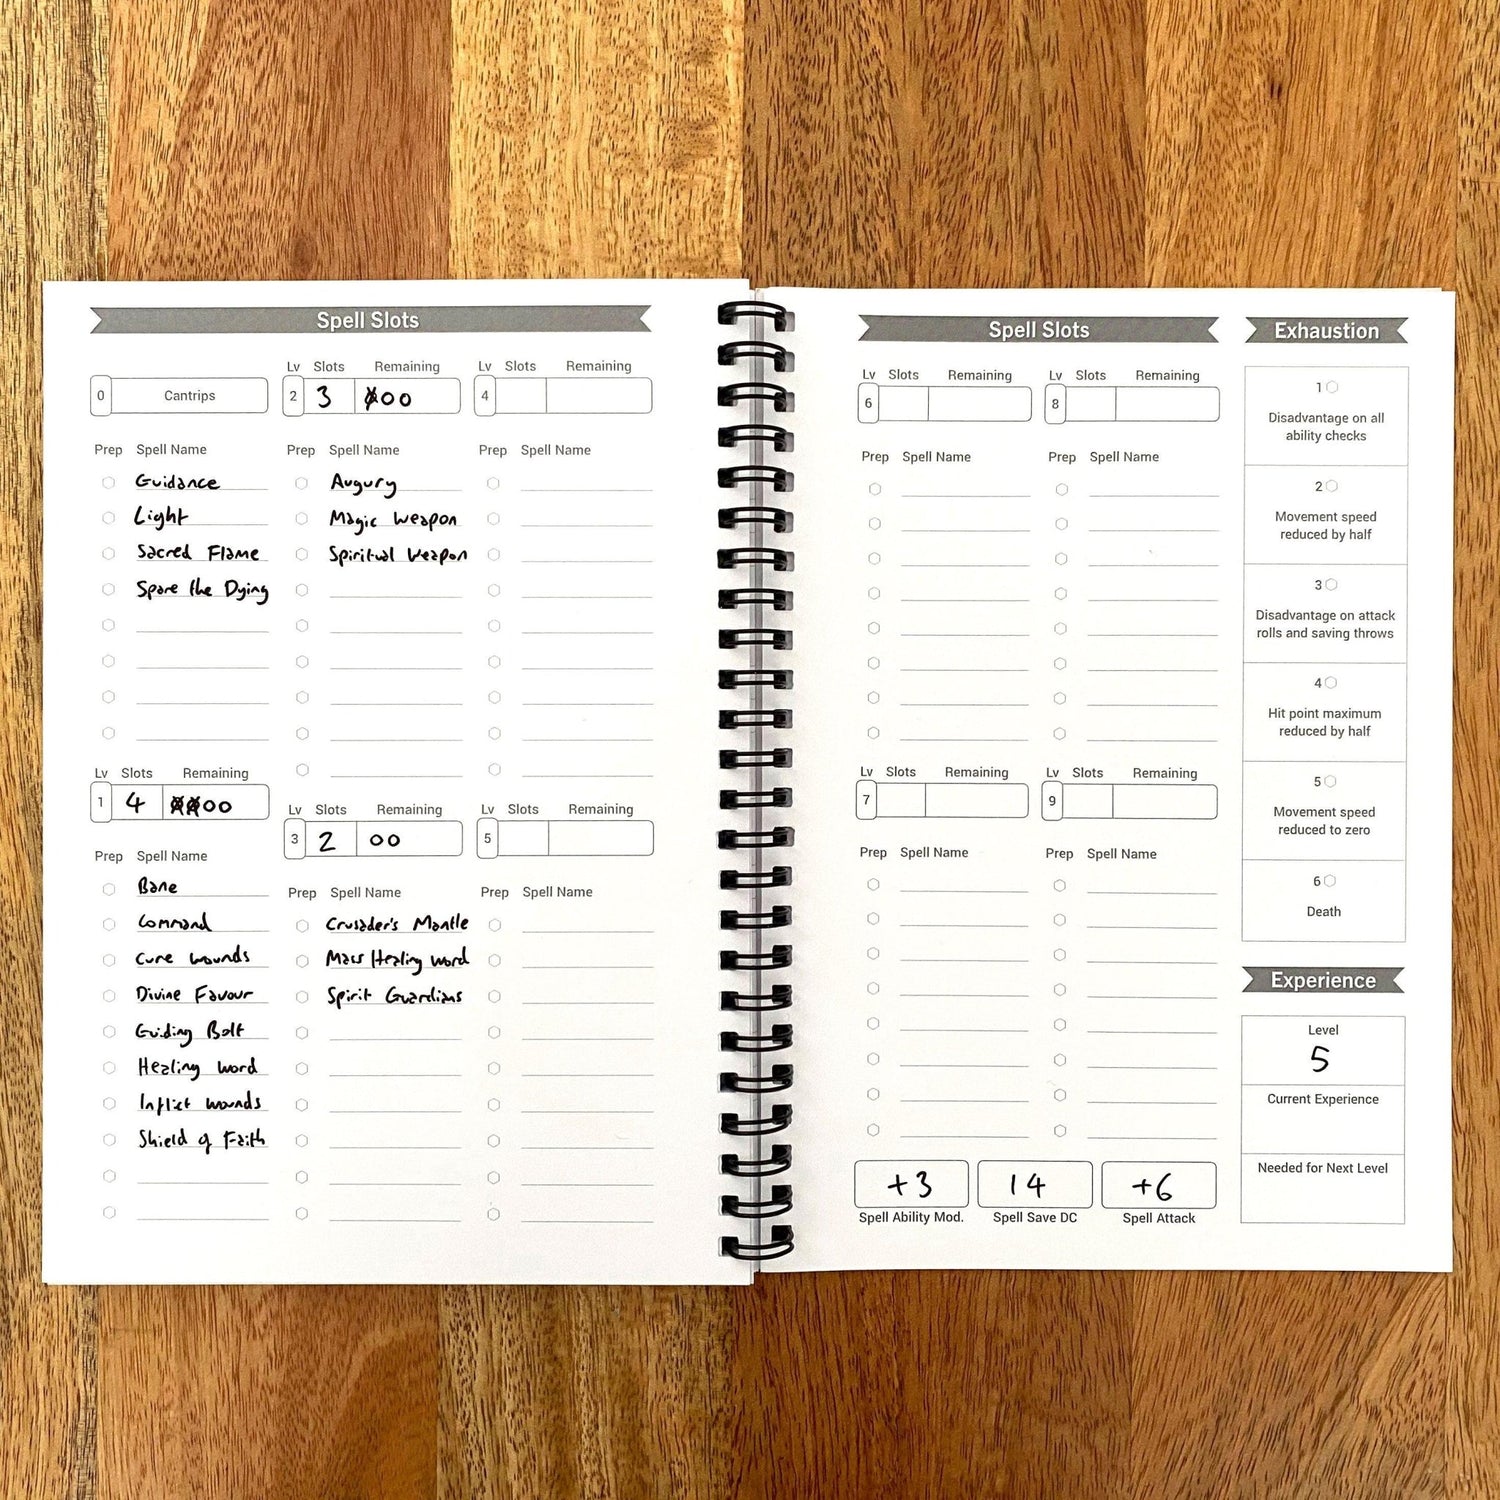 Spell Slots
0 Cantrips
Prep Spell Name
Guidance
Light
Sacred Flame
Spare the Dying
Lv Slots Remaining
1 4 XXOO
Prep Spell Name
Bane
Command
Cure wounds
Divine Favour
Guiding Bolt
Healing word
Inflict wounds
Shield of Faith
Lv Slots Remaining
2 3 XOO
Prep Spell Name
Augury
Magic Weapon
Spiritual Weapon
Lv Slots Remaining
3 2 OO
Prep Spell Name
Crusader's Mantle
Mass Healing Word
Spirit Guardians
Lv Slots Remaining
4
Prep Spell Name
Lv Slots Remaining
5
Prep Spell Name
Spell Slots
Lv Slots Remaining
6
Prep Spell Name
Lv Slots Remaining
7
Prep Spell Name
Lv Slots Remaining
8
Prep Spell Name
Lv Slots Remaining
9
Prep Spell Name
+3
Spell Ability Mod.
14
Spell Save DC
+6
Spell Attack
Exhaustion
1
Disadvantage on all
ability checks
2
Movement speed
reduced by half
3
Disadvantage on attack
rolls and saving throws
4
Hit point maximum
reduced by half
5
Movement speed
reduced to zero
6
Death
Experience
Level
5
Current Experience
Needed for Next Level